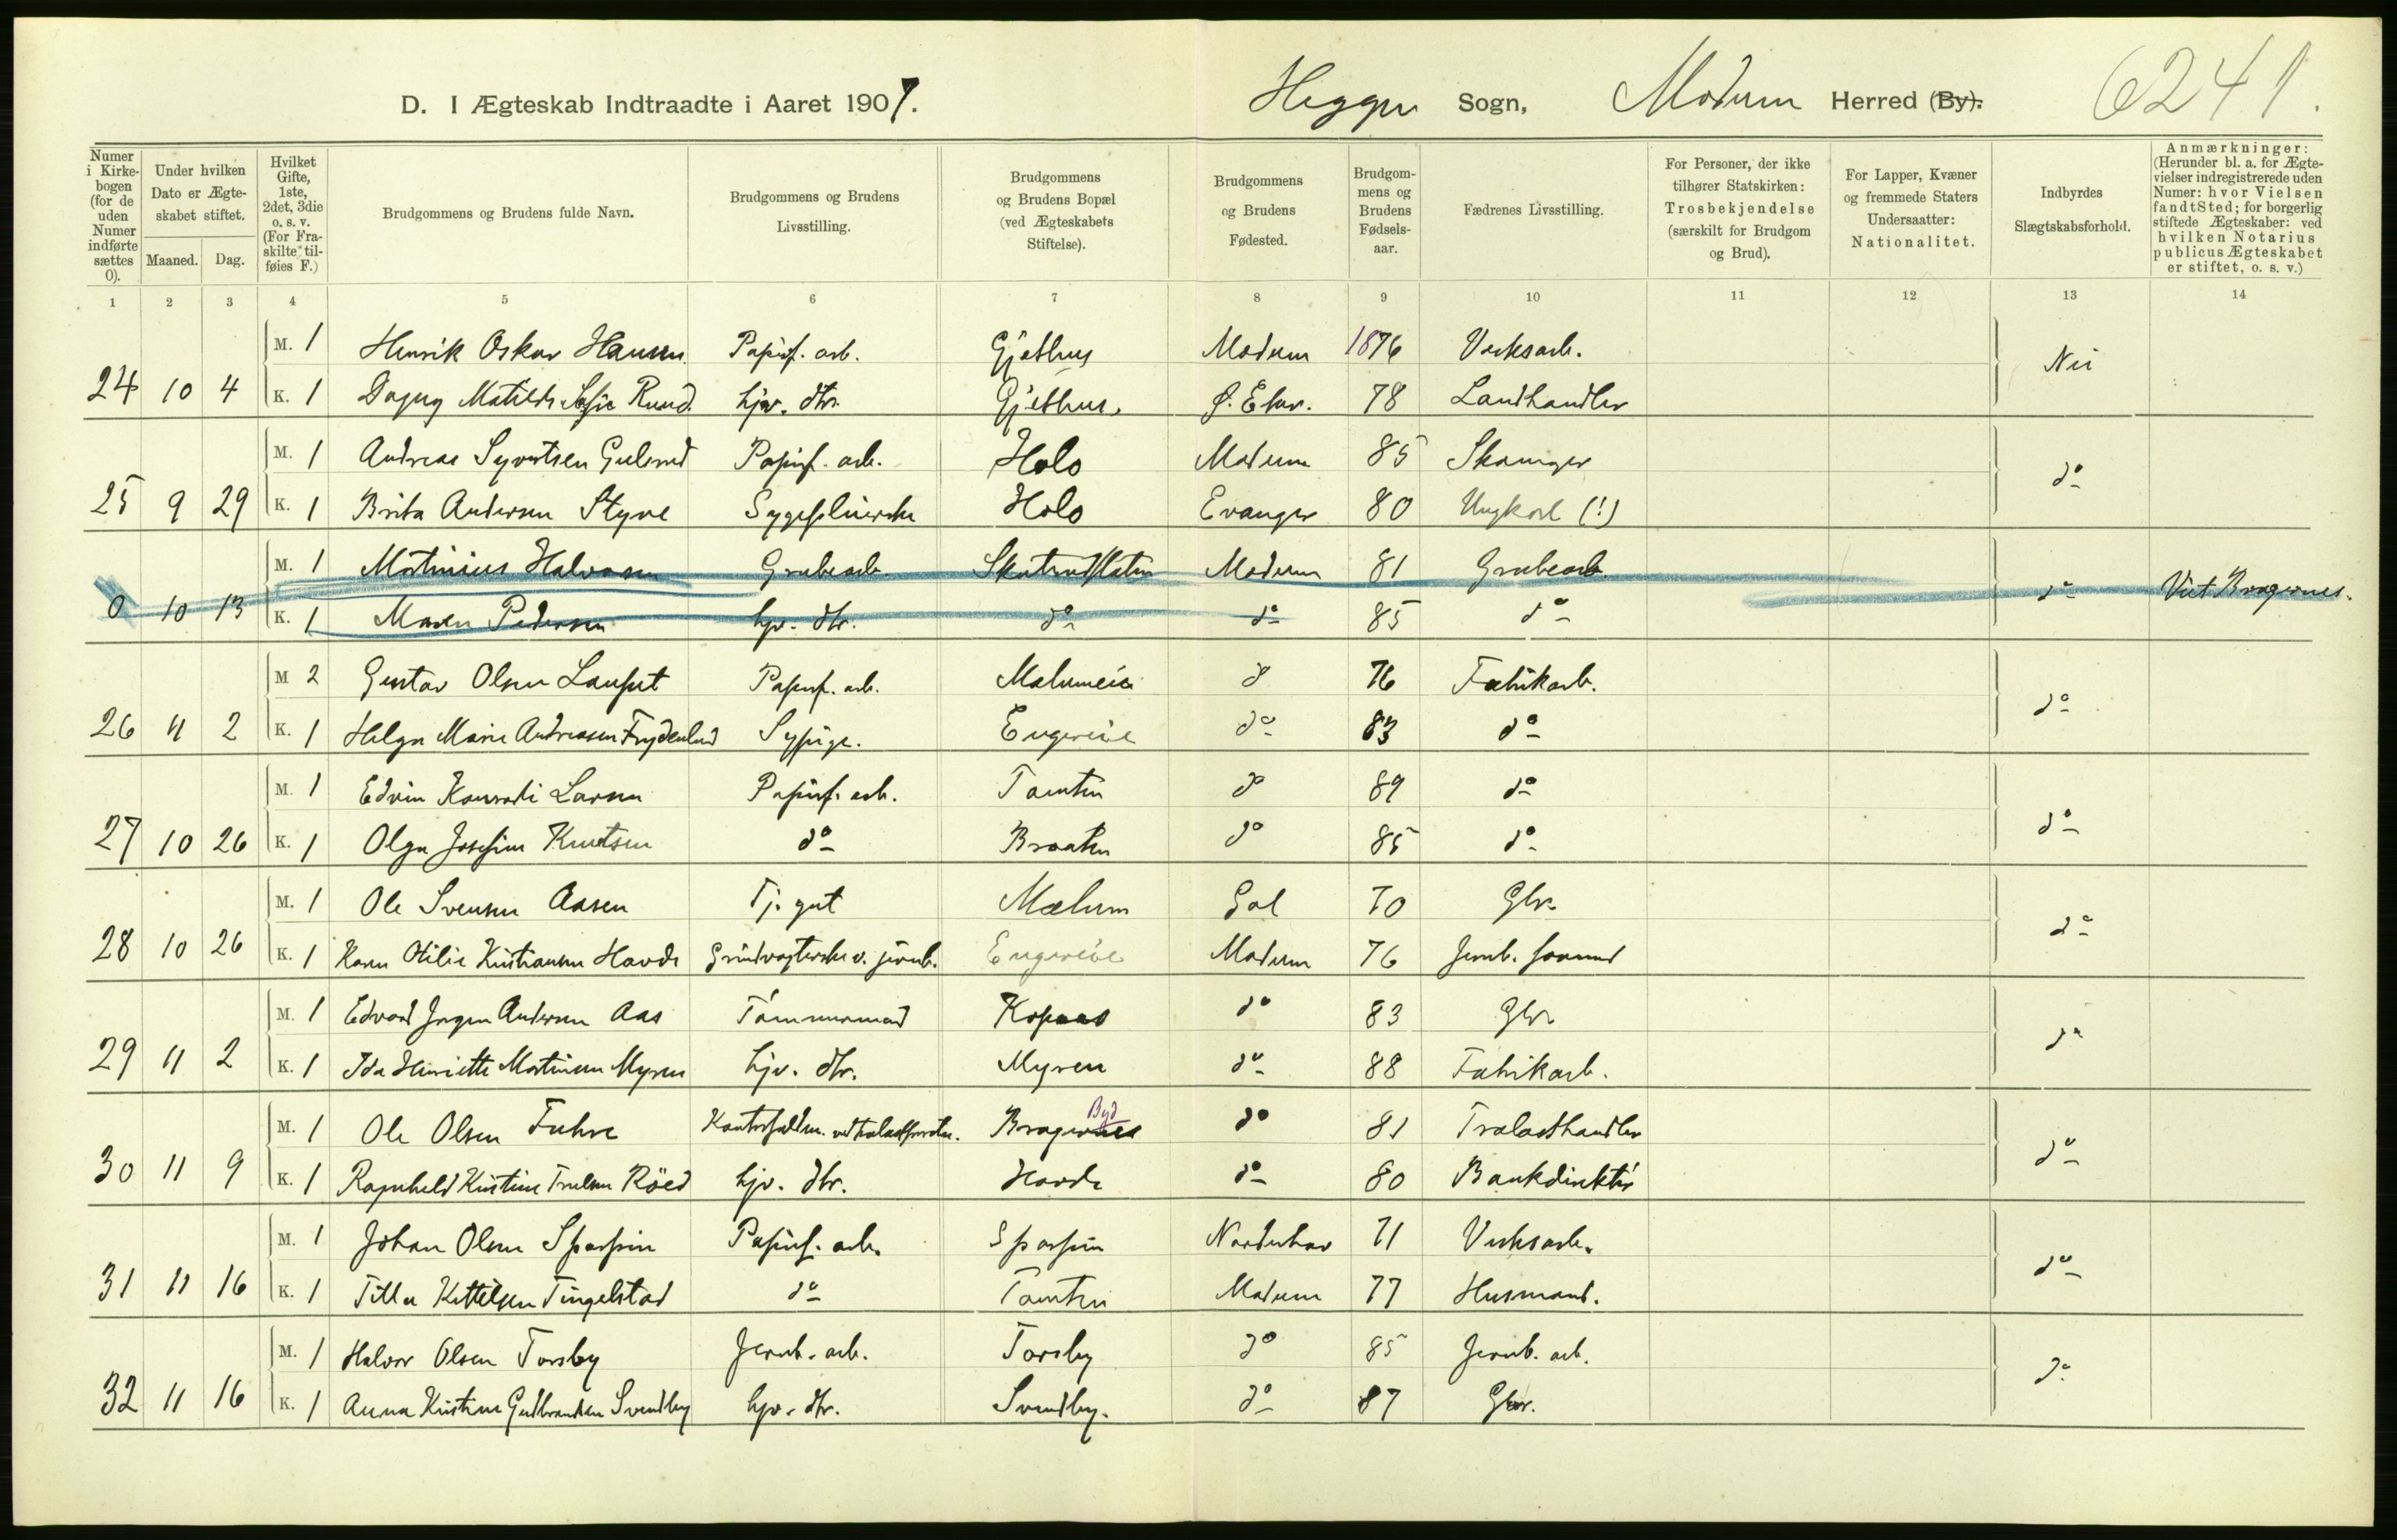 D. I Ægteskab Indtraadte i Aaret 1907. Heggen Sogn, Modum Herred (By). 6241.
Numer i Kirkebogen (for de uden Numer indførte sættes 0).
Under hvilken Dato er Ægteskabet stiftet.
Maaned. Dag.
Hvilket Gifte, 1ste, 2det, 3die o. s. v. (For Fraskilte tilføies F.)
Brudgommens og Brudens fulde Navn.
Brudgommens og Brudens Livsstilling.
Brudgommens og Brudens Bopæl (ved Ægteskabets Stiftelse).
Brudgommens og Brudens Fødested.
Brudgommens og Brudens Fødselsaar.
Fædrenes Livsstilling.
For Personer, der ikke tilhører Statskirken: Trosbekjendelse (særskilt for Brudgom og Brud).
For Lapper, Kvæner og fremmede Staters Undersaatter: Nationalitet.
Indbyrdes Slægtskabsforhold.
Anmærkninger: (Herunder bl. a. for Ægtevielser indregistrerede uden Numer: hvor Vielsen fandt Sted; for borgerlig stiftede Ægteskaber: ved hvilken Notarius publicus Ægteskabet er stiftet, o. s. v.)
1 2 3 4 5 6 7 8 9 10 11 12 13 14
M. 1 Henrik Oskar Hansen Papirf. arb. Gjethus Modum 1876 Verksarb.
24 10 4 K. 1 Dagny Matilde Sofie Ruud. hjv. dtr. Gjethus. Ø. Eker. 78 Landhandler Nei
M. 1 Andreas Syvertsen Gulsrud Papirf. arb. Holo Modum 85 Skomager
25 9 29 K. 1 Brita Andersen Styve Sygepleierske Holo Evanger 80 Ungkarl (!) do
M. 1 Martinius Halvorsen Grubearb. Modum 81 Grubearb.
0 10 13 K. 1 Maren Pedersen hjv. dtr. do do 85 do do Viet Bragernes.
M 2 Gustav Olsen Papirf. arb. do 76 Fabrikarb.
26 11 2 K. 1 Helga Marie Andreasen Frydenlund Sypige. Engereie do 83 do do
M. 1 Edvin Konradi Larsen Papirf. arb. Tomten do 89 do
27 10 26 K. 1 Olga Josefine Knutsen do Braaten do 85 do do
M. 1 Ole Svensen Aasen Tj. gut Mælum Gol 70 Gbr.
28 10 26 K. 1 Karen Otilie Kristiansen Hovde Grindvogterske v. jernb. Engereie Modum 76 Jernb. formand do
M. 1 Edvard Jørgen Andersen Aas Tömmermand Kopaas do 83 Gbr.
29 11 2 K. 1 Ida Henriette Martinsen Myren hjv. dtr. Myren do 88 Fabrikarb. do
M. 1 Ole Olsen Fuhre Bragernes Byd do 81 Trælasthandler
30 11 9 K. 1 Ragnhild Kristine Truelsen Röed hjv. dtr. Hovde do 80 Bankdirektör do
M. 1 Johan Olsen Papirf. arb. Norderhov 71 Verksarb.
31 11 16 K. 1 Tilla Kittilsen Tingelstad do Tomten Modum 77 Husmand. do
M. 1 Halvor Olsen Torsby Jernb. arb. Torsby do 85 Jernb. arb.
32 11 16 K. 1 Anna Kristine Gulbrandsen Svendby hjv. dtr. Svendby. do 87 Gbr. do